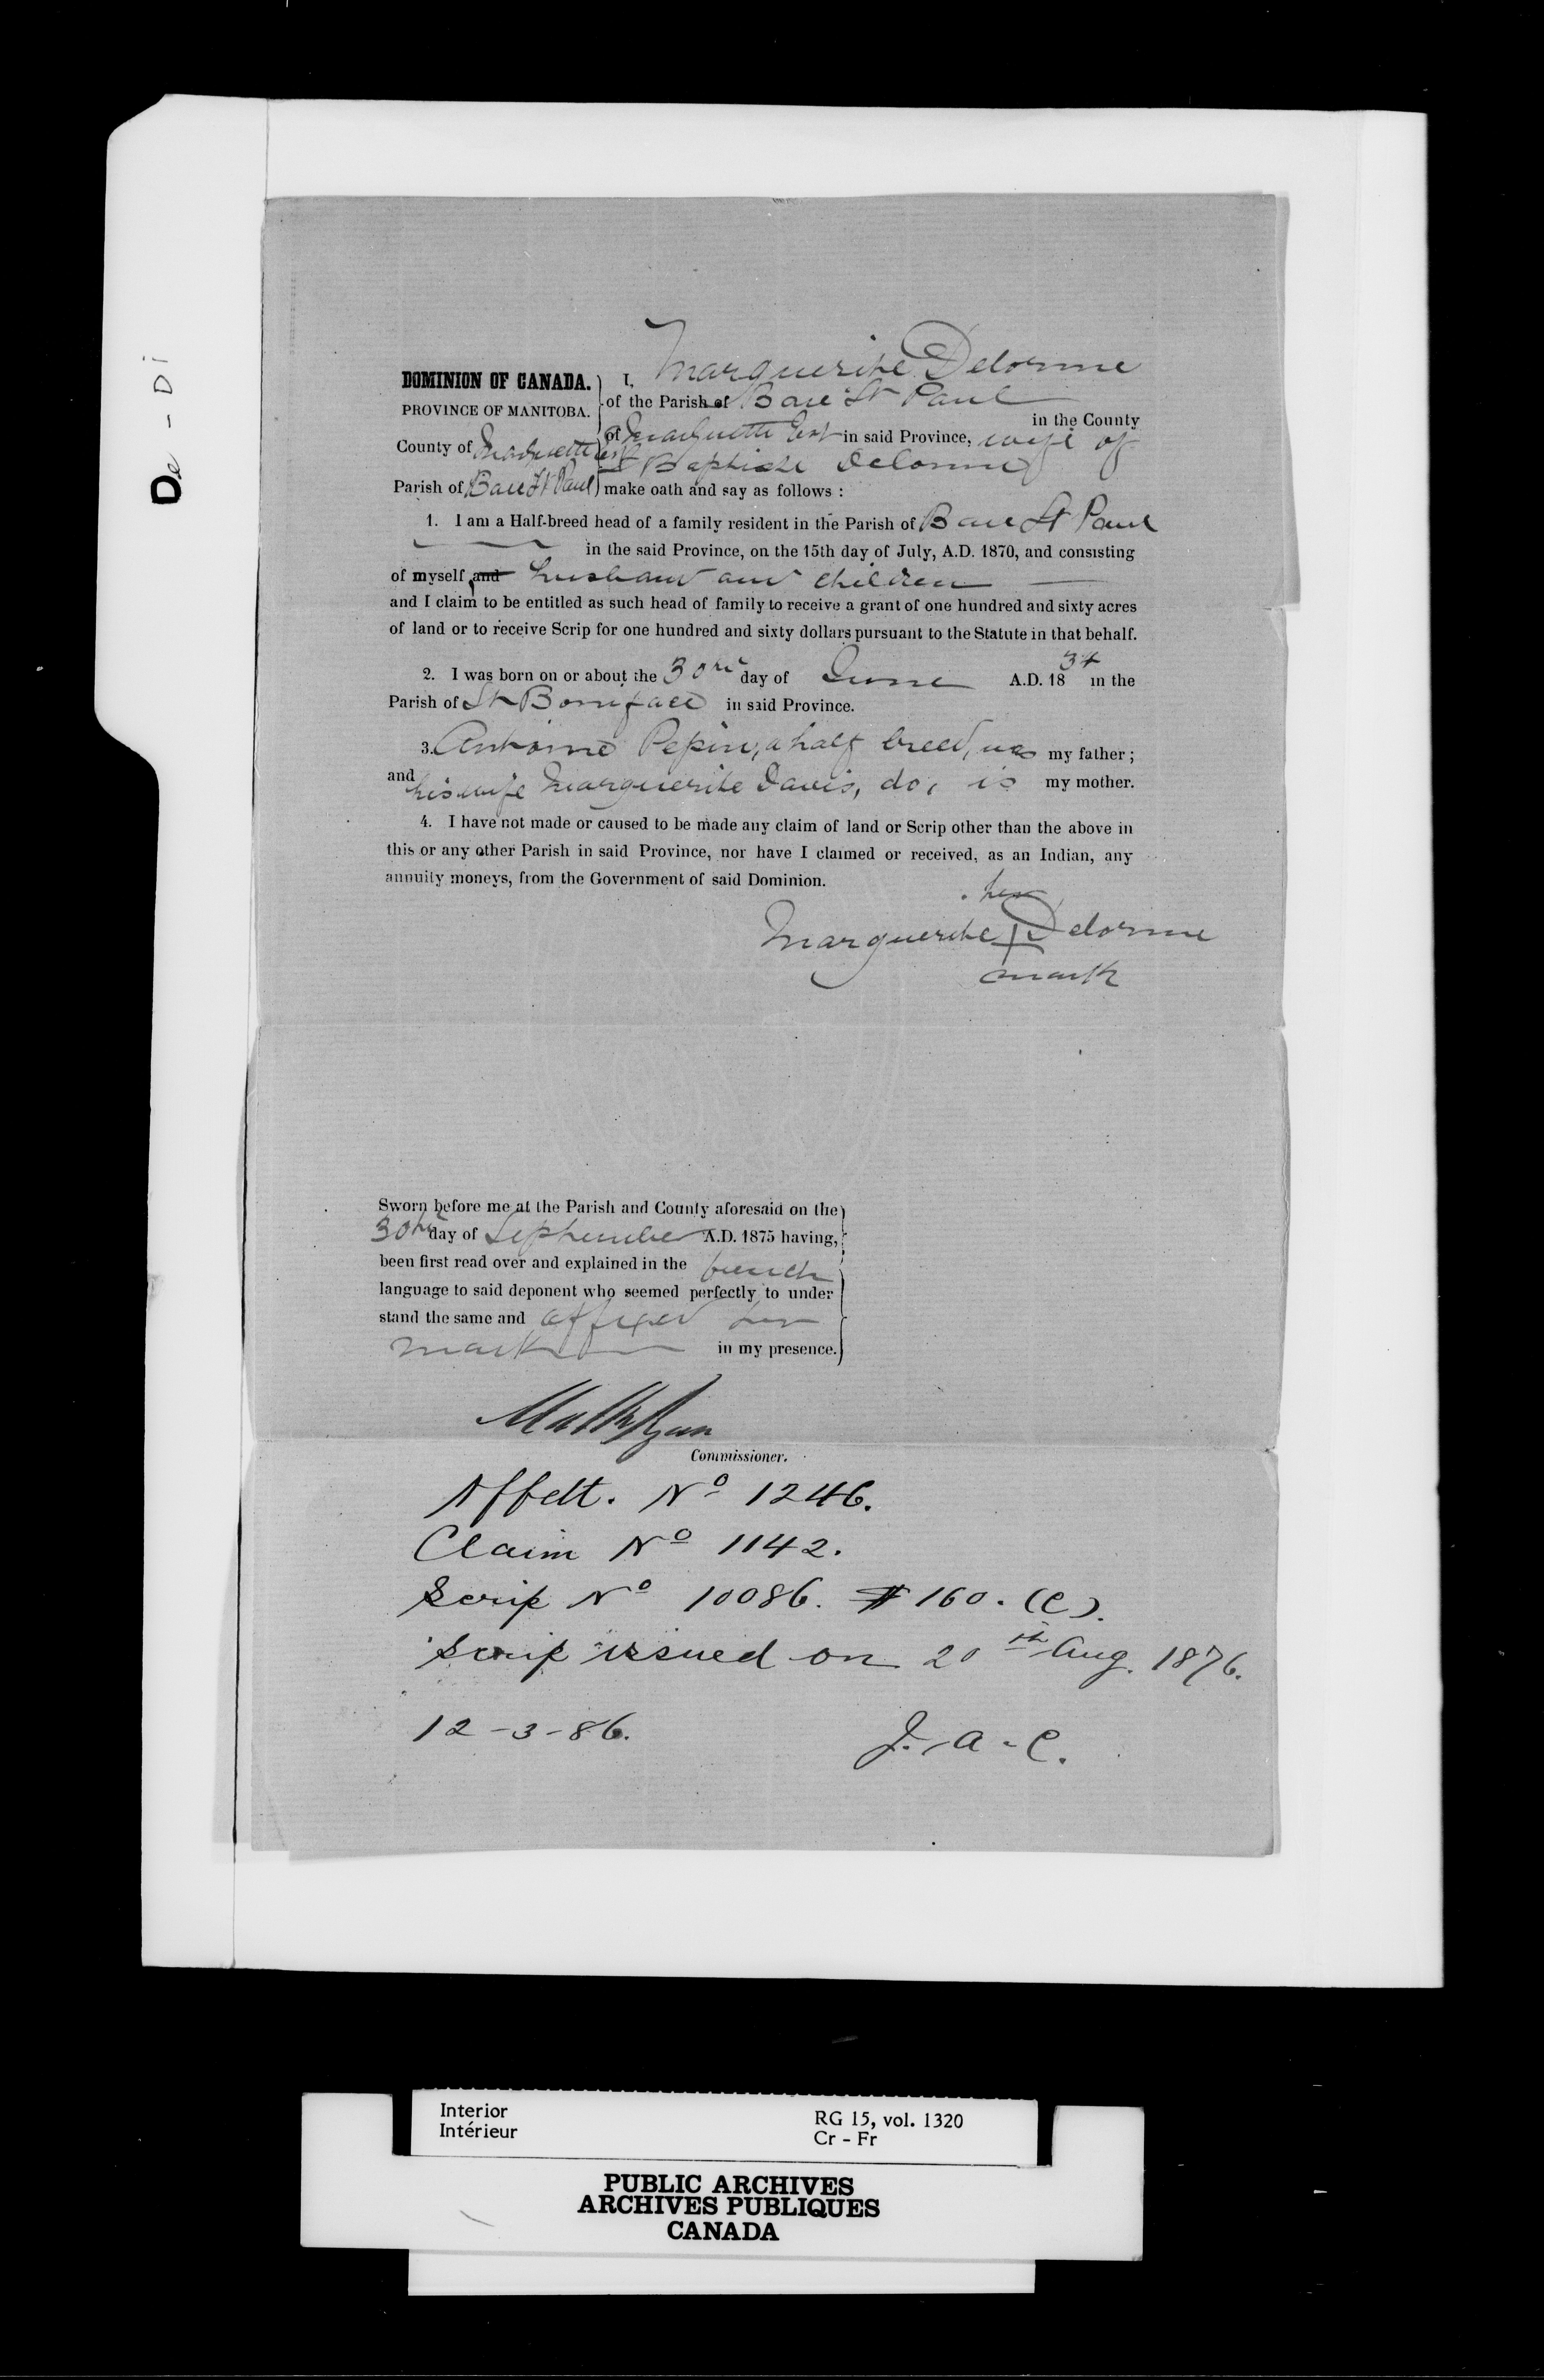 De - Di
DOMINION OF CANADA.
PROVINCE OF MANITOBA.
County of Marquette East
Parish of Baie St Paul
I, Marguerite Delorme
of the Parish of Baie St Paul
in the County
of Marquette East in said Province, wife of
Baptiste Delorme
make oath and say as follows :
1. I am a Half-breed head of a family resident in the Parish of Baie St Paul
in the said Province, on the 15th day of July, A.D. 1870, and consisting
of myself, and husband and children
and I claim to be entitled as such head of family to receive a grant of one hundred and sixty acres
of land or to receive Scrip for one hundred and sixty dollars pursuant to the Statute in that behalf.
2. I was born on or about the 30th day of June A.D. 1834 in the
Parish of St Boniface in said Province.
3. Antoine Pepin, a half breed, was my father ;
and his wife Marguerite Davis, do, is my mother.
4. I have not made or caused to be made any claim of land or Scrip other than the above in
this or any other Parish in said Province, nor have I claimed or received, as an Indian, any
annuity moneys, from the Government of said Dominion.
her
Marguerite + Delorme
mark
Sworn before me at the Parish and County aforesaid on the
30th day of September A.D. 1875 having,
been first read over and explained in the french
language to said deponent who seemed perfectly to under
stand the same and affixed her
mark in my presence.
Matth Ryan
Commissioner.
Affdt. No 1246.
Claim No 1142.
Scrip No 10086. $160. (C).
Scrip issued on 20th Aug. 1876.
12-3-86. J. A. C.
Interior
Intérieur
RG 15, vol. 1320
Cr - Fr
PUBLIC ARCHIVES
ARCHIVES PUBLIQUES
CANADA